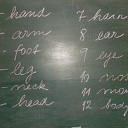 - hand
- arm
- foot
- leg
- neck
- head
7 hair
8 ear
9 eye
10 nose
11 mou
12 body